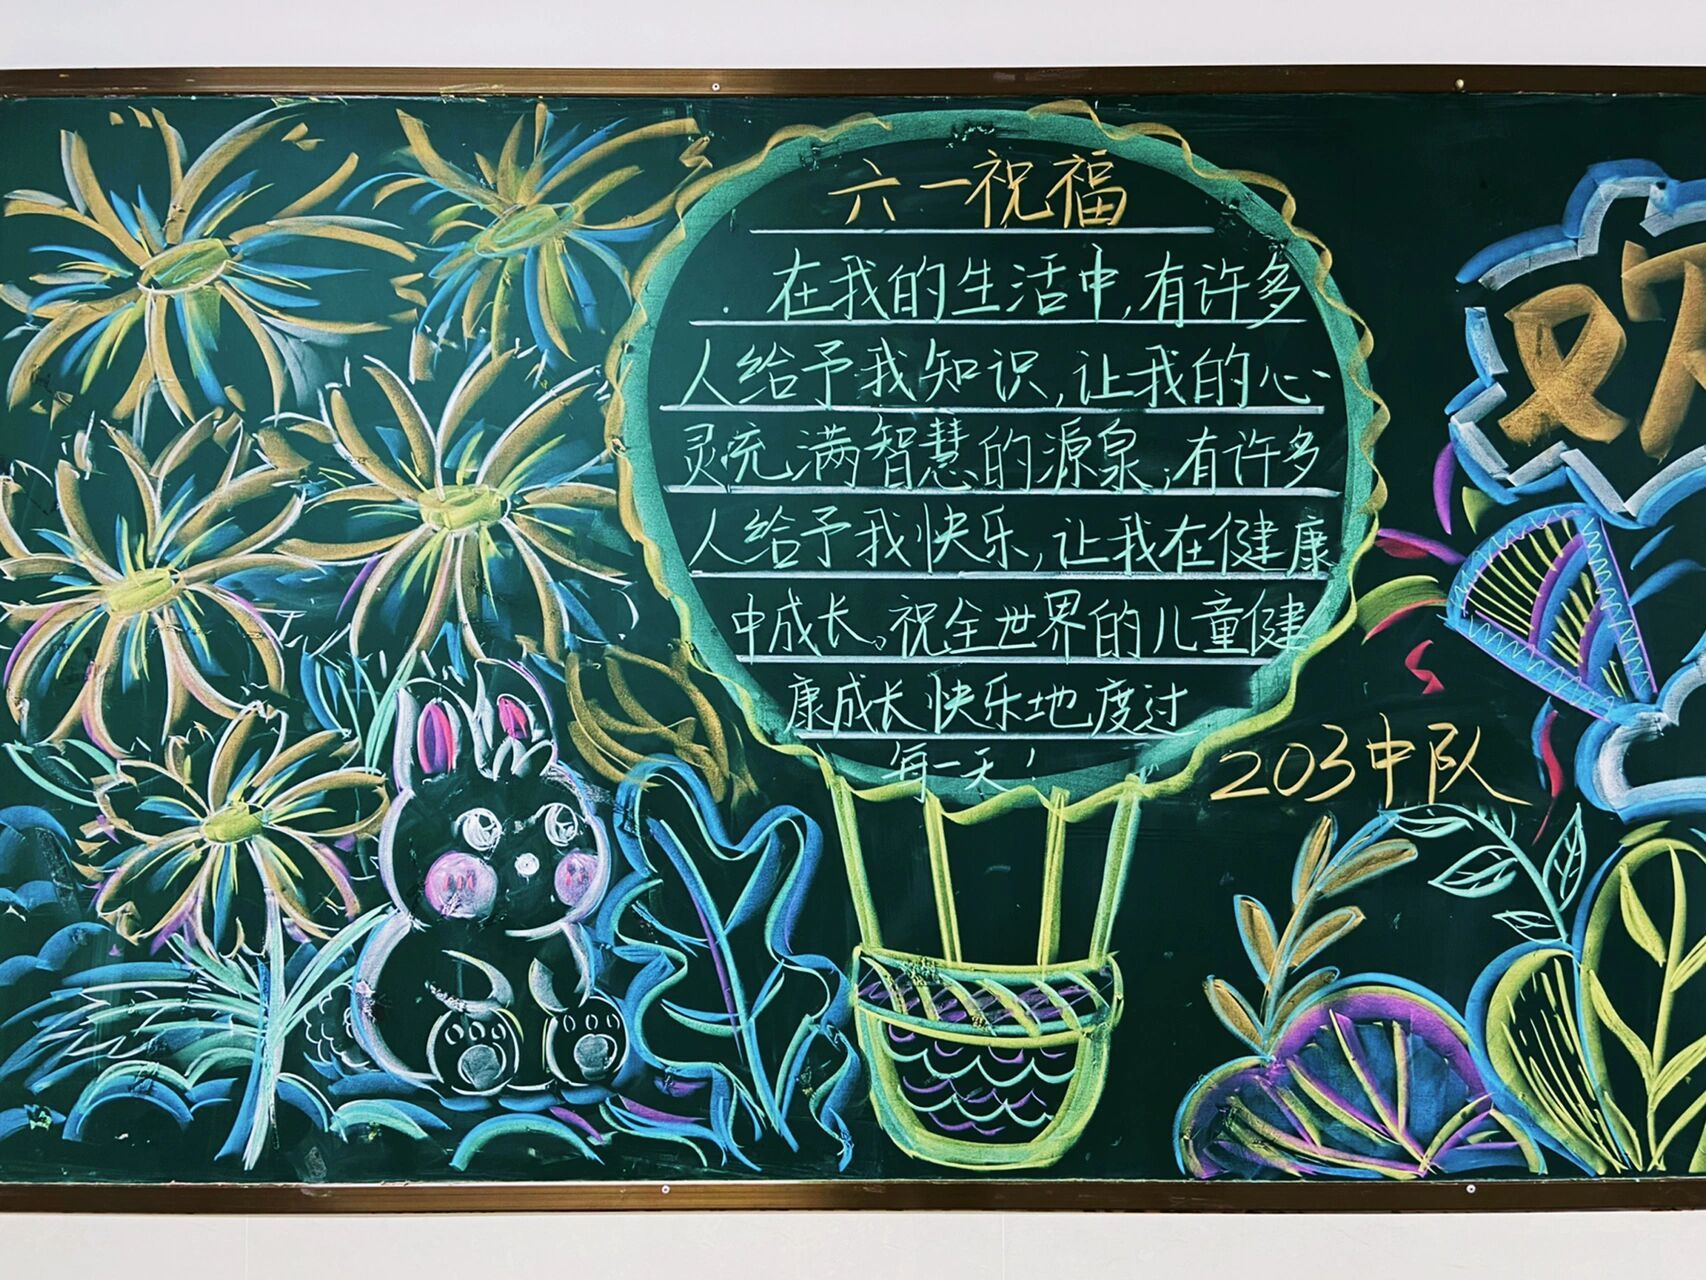 六一祝福
在我的生活中,有许多
人给予我知识,让我的心
灵充满智慧的源泉;有许多
人给予我快乐,让我在健康
中成长。祝全世界的儿童健
康成长快乐地度过
每一天!
203中队
欢